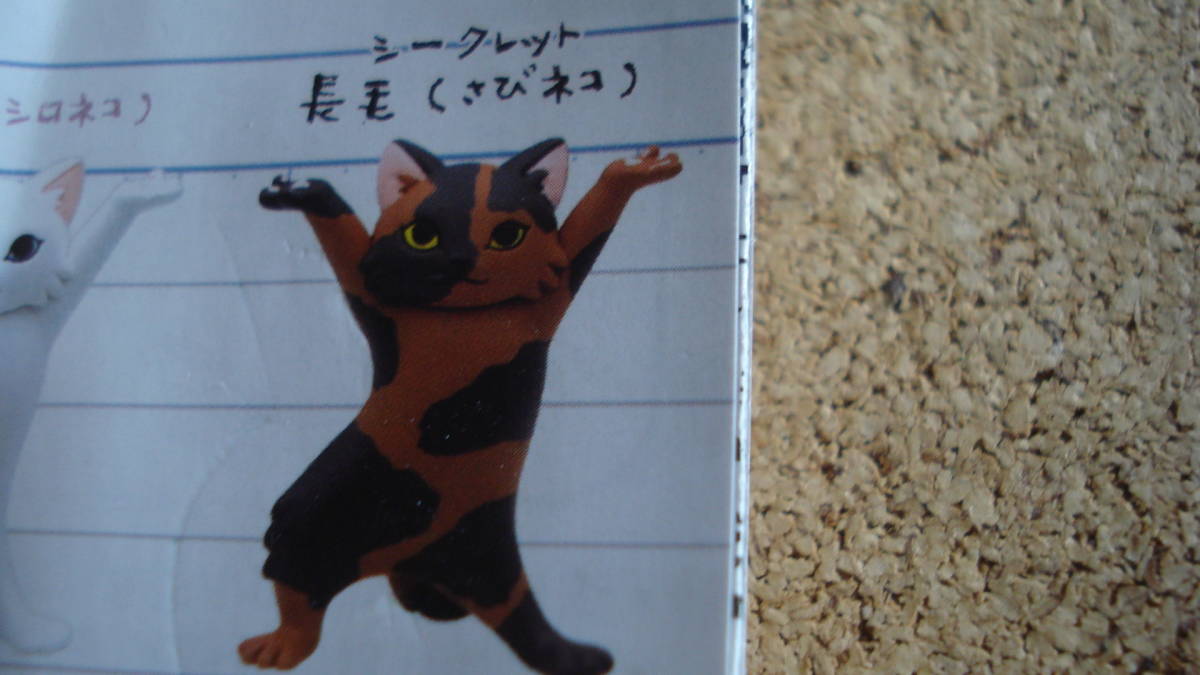 シークレット
長毛(さびネコ)
シロネコ)